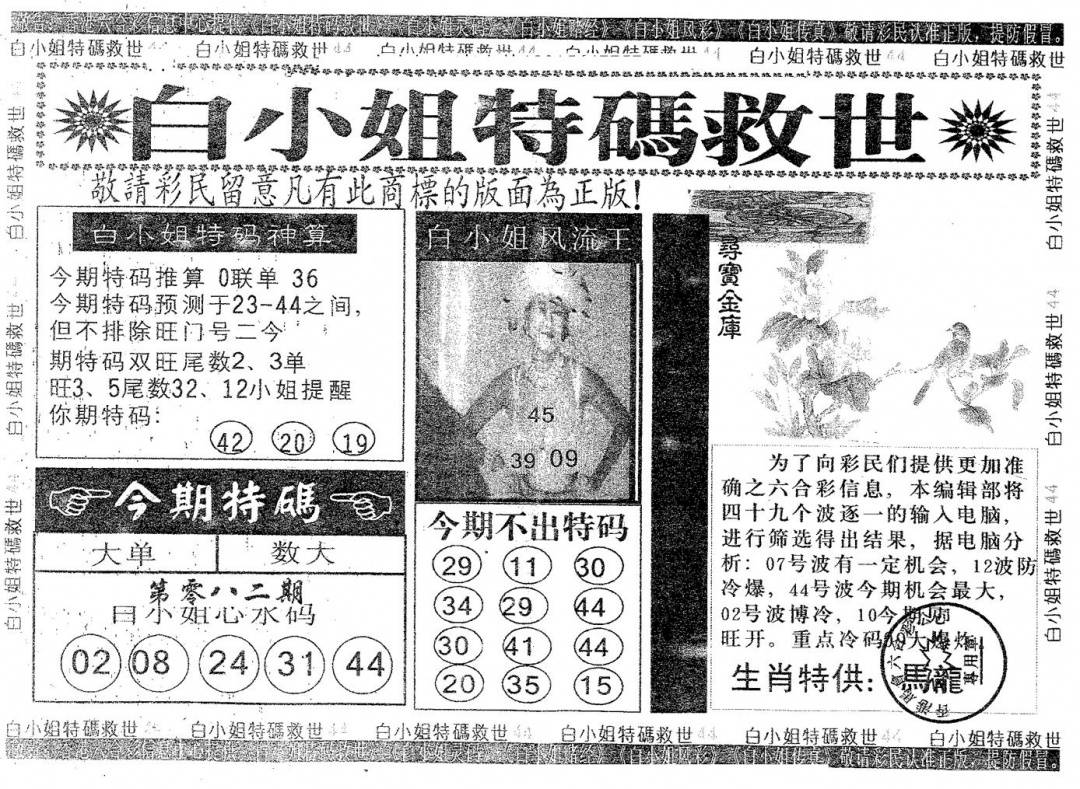 《白小姐传真》敬请彩民认准正版，提防假冒。
白小姐特碼救世 白小姐特碼救世 白小姐特碼救世 白小姐特碼救世 白小姐特碼救世 白小姐特碼救世
白小姐特碼救世
敬請彩民留意凡有此商標的版面為正版!
白小姐特码神算
今期特码推算 0联单 36
今期特码预测于23-44之间,
但不排除旺门号二今
期特码双旺尾数2、3单
旺3、5尾数32、12小姐提醒
你期特码:
42 20 19
今期特碼
大单 数大
第零八二期
白小姐心水码
02 08 24 31 44
白小姐风流王
45
39 09
今期不出特码
29 11 30
34 29 44
30 41 44
20 35 15
尋寶金庫
为了向彩民们提供更加准
确之六合彩信息，本编辑部将
四十九个波逐一的输入电脑，
进行筛选得出结果，据电脑分
析：07号波有一定机会，12波防
冷爆，44号波今期机会最大，
02号波博冷，10今期
旺开。重点冷码 大爆炸
生肖特供：馬龍
專用章
白小姐特碼救世
白小姐特碼救世
白小姐特碼救世
白小姐特碼救世
白小姐特碼救世
白小姐特碼救世
白小姐特碼救世 白小姐特碼救世 白小姐特碼救世 白小姐特碼救世 白小姐特碼救世 白小姐特碼救世
敬请彩民认准正版，提防假冒。